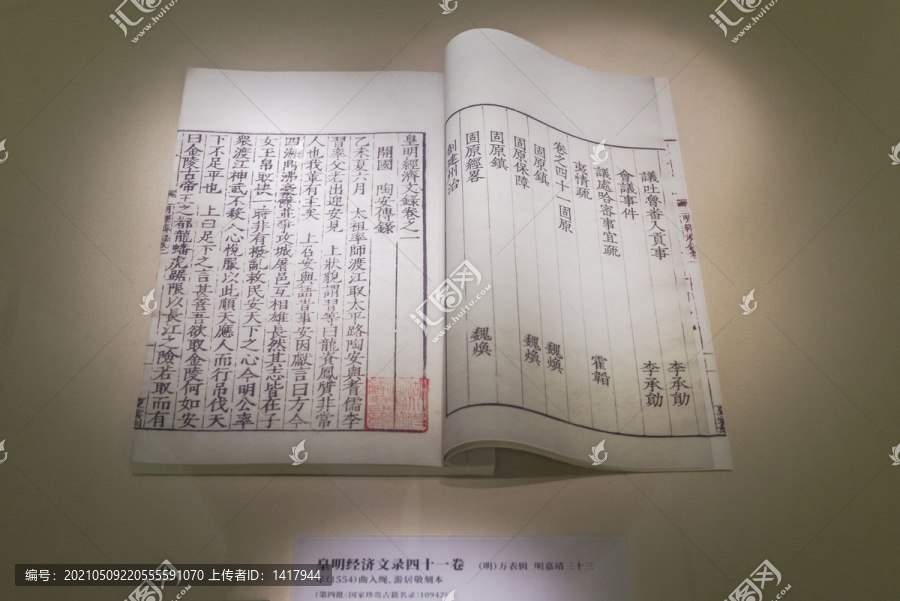 議吐魯番人貢事 李承勛
會議事件 李承勛
議處哈密事宜疏
夷情疏 霍韜
卷之四十一固原
固原鎮 魏煥
固原保障 魏煥
固原鎮
固原經畧 魏煥
創建州治
皇明經濟文錄卷之一
開國 陶安傳錄
乙未夏六月 太祖率師渡江取太平路陶安與耆儒李
習率父老出迎安見 上狀貌謂習等曰龍資鳳質非常
人也我輩有主矣 上召安與語時事安因獻言曰方今
四海鼎沸豪傑並爭攻城屠邑互相雄長然其志皆在子
女玉帛取快一時非有撥亂救民安天下之心今明公率
衆渡江神武不殺人心悅服以此順天應人而行吊伐天
下不足平也 上曰足下之言甚善吾欲取金陵何如安
曰金陵古帝王之都龍蟠虎踞限以長江之險若取而有
皇明经济文录四十一卷 (明)万表辑 明嘉靖三十三
(1554)曲入绳、游居敬刻本
(第四批《国家珍贵古籍名录》10942)
编号：20210509220555591070 上传者ID：1417944
汇图网
www.huitu.com